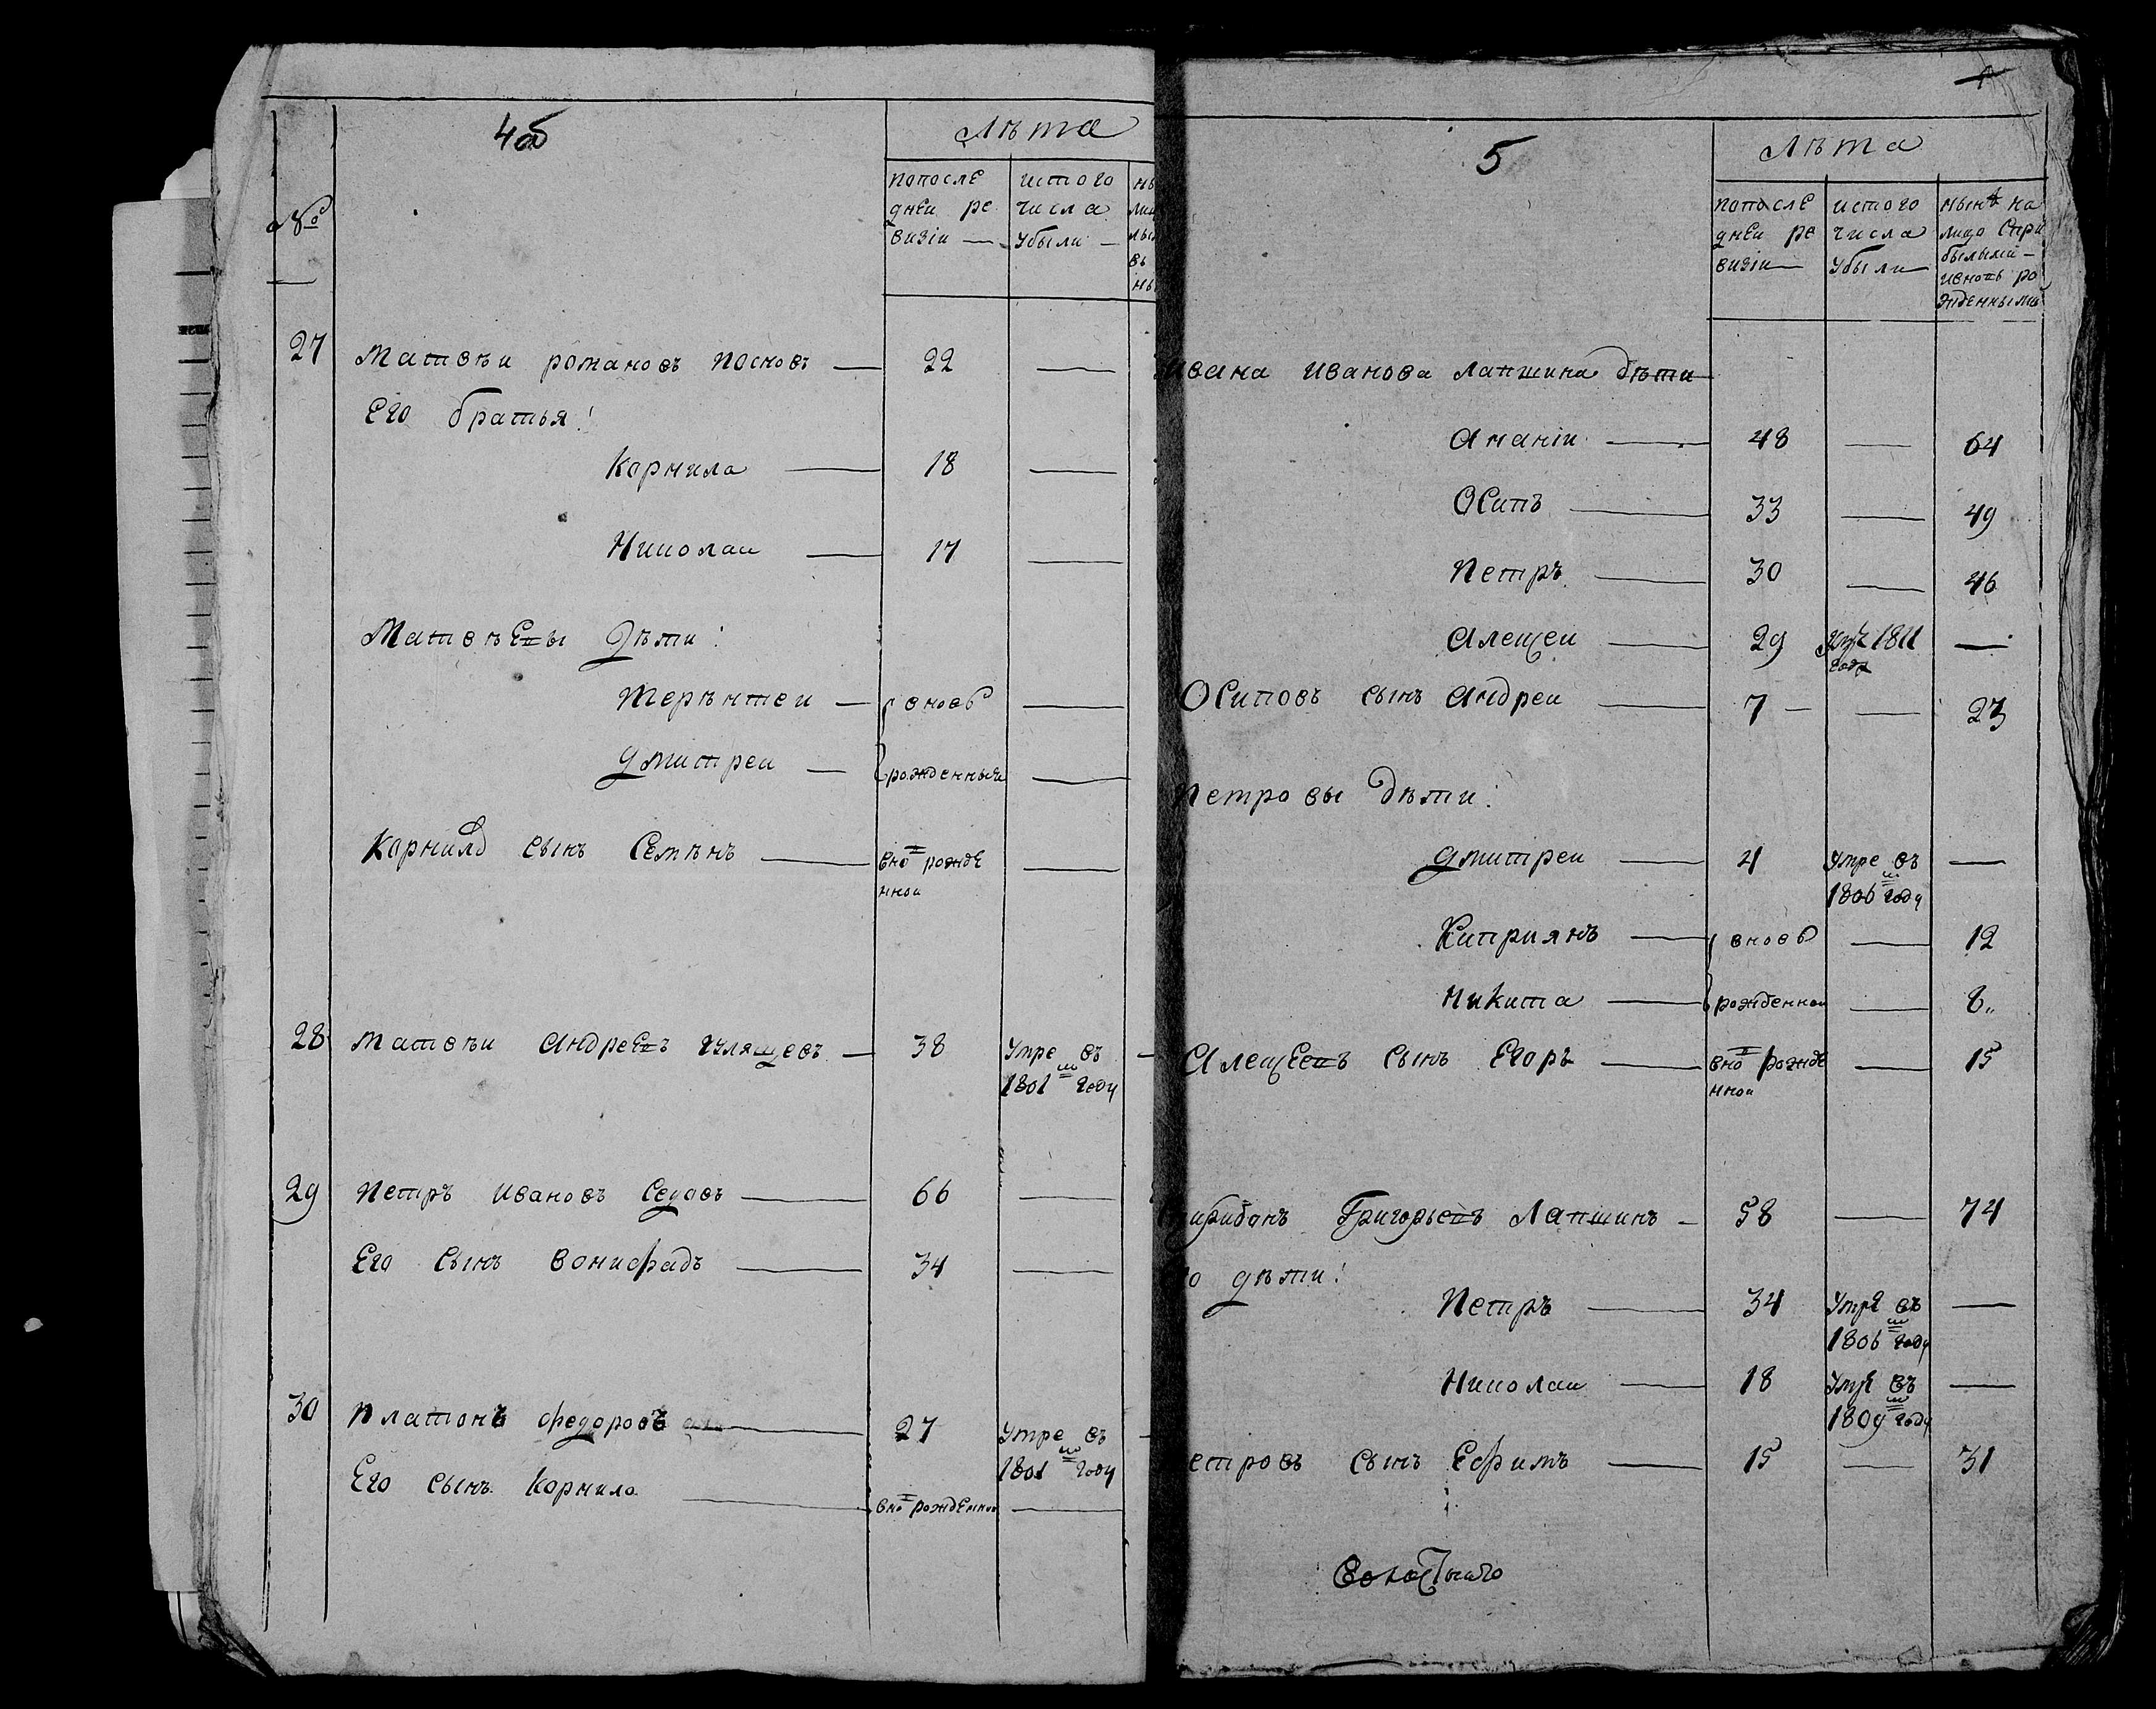 4об
Лѣта
№
попосле
дней ре
визіи
истого
числа
убыли
27 Матвѣи романовъ Посновъ — 22 —
Его братья:
Корнила — 18 —
Николаи — 17 —
Матвѣевы дѣти:
Терѣнтеи — вновь —
дмитреи — рожденныи —
Корнилѡ сынъ Семѣнъ — вно рожде —
нной
28 Матвѣи Андреевъ — 38 Умре въ —
1801 году
29 Петръ Ивановъ Седовъ — 66 —
Его сынъ Вонифадъ — 34 —
30 Платонъ Федоровъ — 27 Умре въ —
1801 году
Его сынъ Корнило — вно рожденнои —
5
Лѣта
попосле
дней ре
визіи
истого
числа
убыли
нынѣ на
лицо спри
былыми
ивновь ро
жденными
Ивана Иванова Лапшина дѣти
Ананіи — 48 — 64
Осипъ — 33 — 49
Петръ — 30 — 46
Алеѯеи — 29 1811 —
года
Осиповъ сынъ Андреи — 7 — — 23
Петровы дѣти:
дмитреи — 4 Умре въ —
1806 году
Киприянъ — вновь — 12
Никита — рожденнои — 8
Алеѯеевъ сынъ Егоръ — вно рожде — 15
ннои
Григорьевъ Лапшинъ — 58 — 74
дѣти:
Петръ — 34 Умре въ —
1806 году
Николаи — 18 Умре въ —
1809 году
етровъ сынъ Ефимъ — 15 — 31